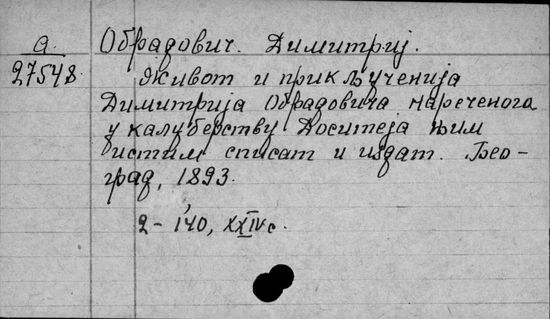 а
27548.
Обрадович. Димитриј.
Живот и прикљученија
Димитрија Обрадовича нареченога
у калуберству Доситеја њим
истим списат и издат. Бео-
град, 1893.
2-140, XXIV с.